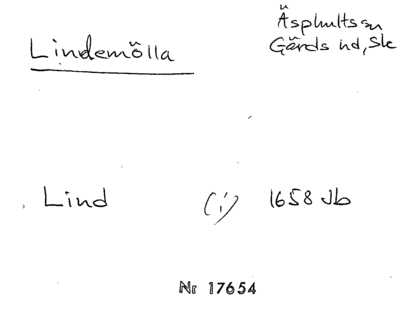 Lindemölla
Äsphults sn
Gärds hd, Sk
Lind (i) 1658 Jb
Nr 17654